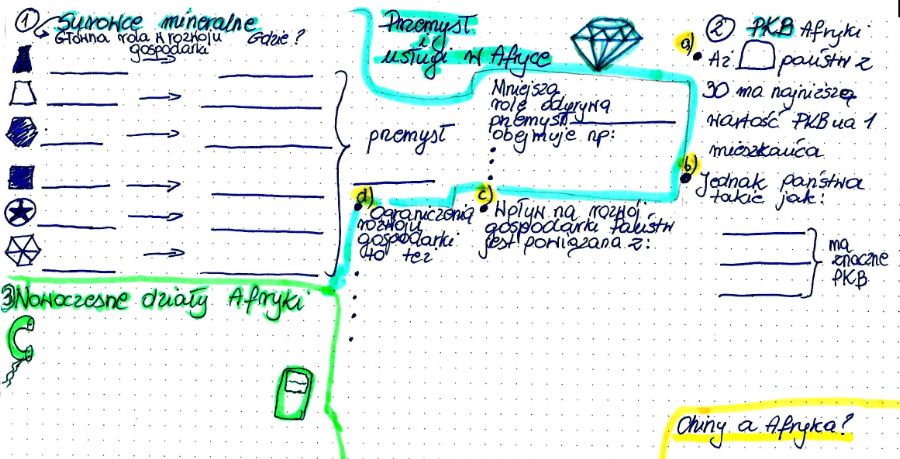 ① Surowce mineralne
Główna rola w rozwoju
gospodarki
Gdzie?
przemysł
Przemysł
i
usługi w Afryce
Mniejszą
rolę odgrywa
przemysł
obejmuje np:
② PKB Afryki
a)
Aż państw z
30 ma najniższą
wartość PKB na 1
mieszkańca
b)
Jednak państwa
takie jak:
ma
znaczne
PKB
c)
Wpływ na rozwój
gospodarki państw
jest powiązana z:
d)
Ograniczenia
rozwoju
gospodarki
to też
3) Nowoczesne działy Afryki
Chiny a Afryka?